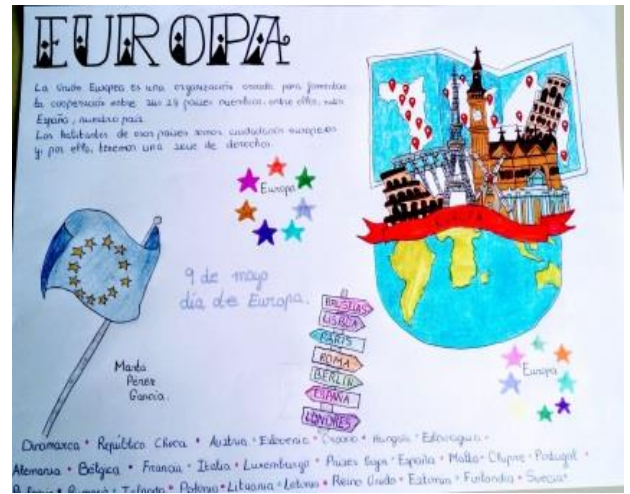 EUROPA
La Unión Europea es una organización creada para fomentar
la cooperación entre sus 28 países miembros, entre ellos, está
España, nuestro país.
Los habitantes de esos países somos ciudadanos europeos
y, por ello, tenemos una serie de derechos.
Europa
EUROPA
9 de mayo
día de Europa.
BRUSELAS
LISBOA
PARIS
ROMA
BERLIN
ESPAÑA
LONDRES
Marta
Pérez
García.
Europa
Dinamarca • República Checa • Austria • Eslovenia • Croacia • Hungría • Eslovaquia •
Alemania • Bélgica • Francia • Italia • Luxemburgo • Países Bajos • España • Malta • Chipre • Portugal •
Rumanía • Irlanda • Polonia • Lituania • Letonia • Reino Unido • Estonia • Finlandia • Suecia •